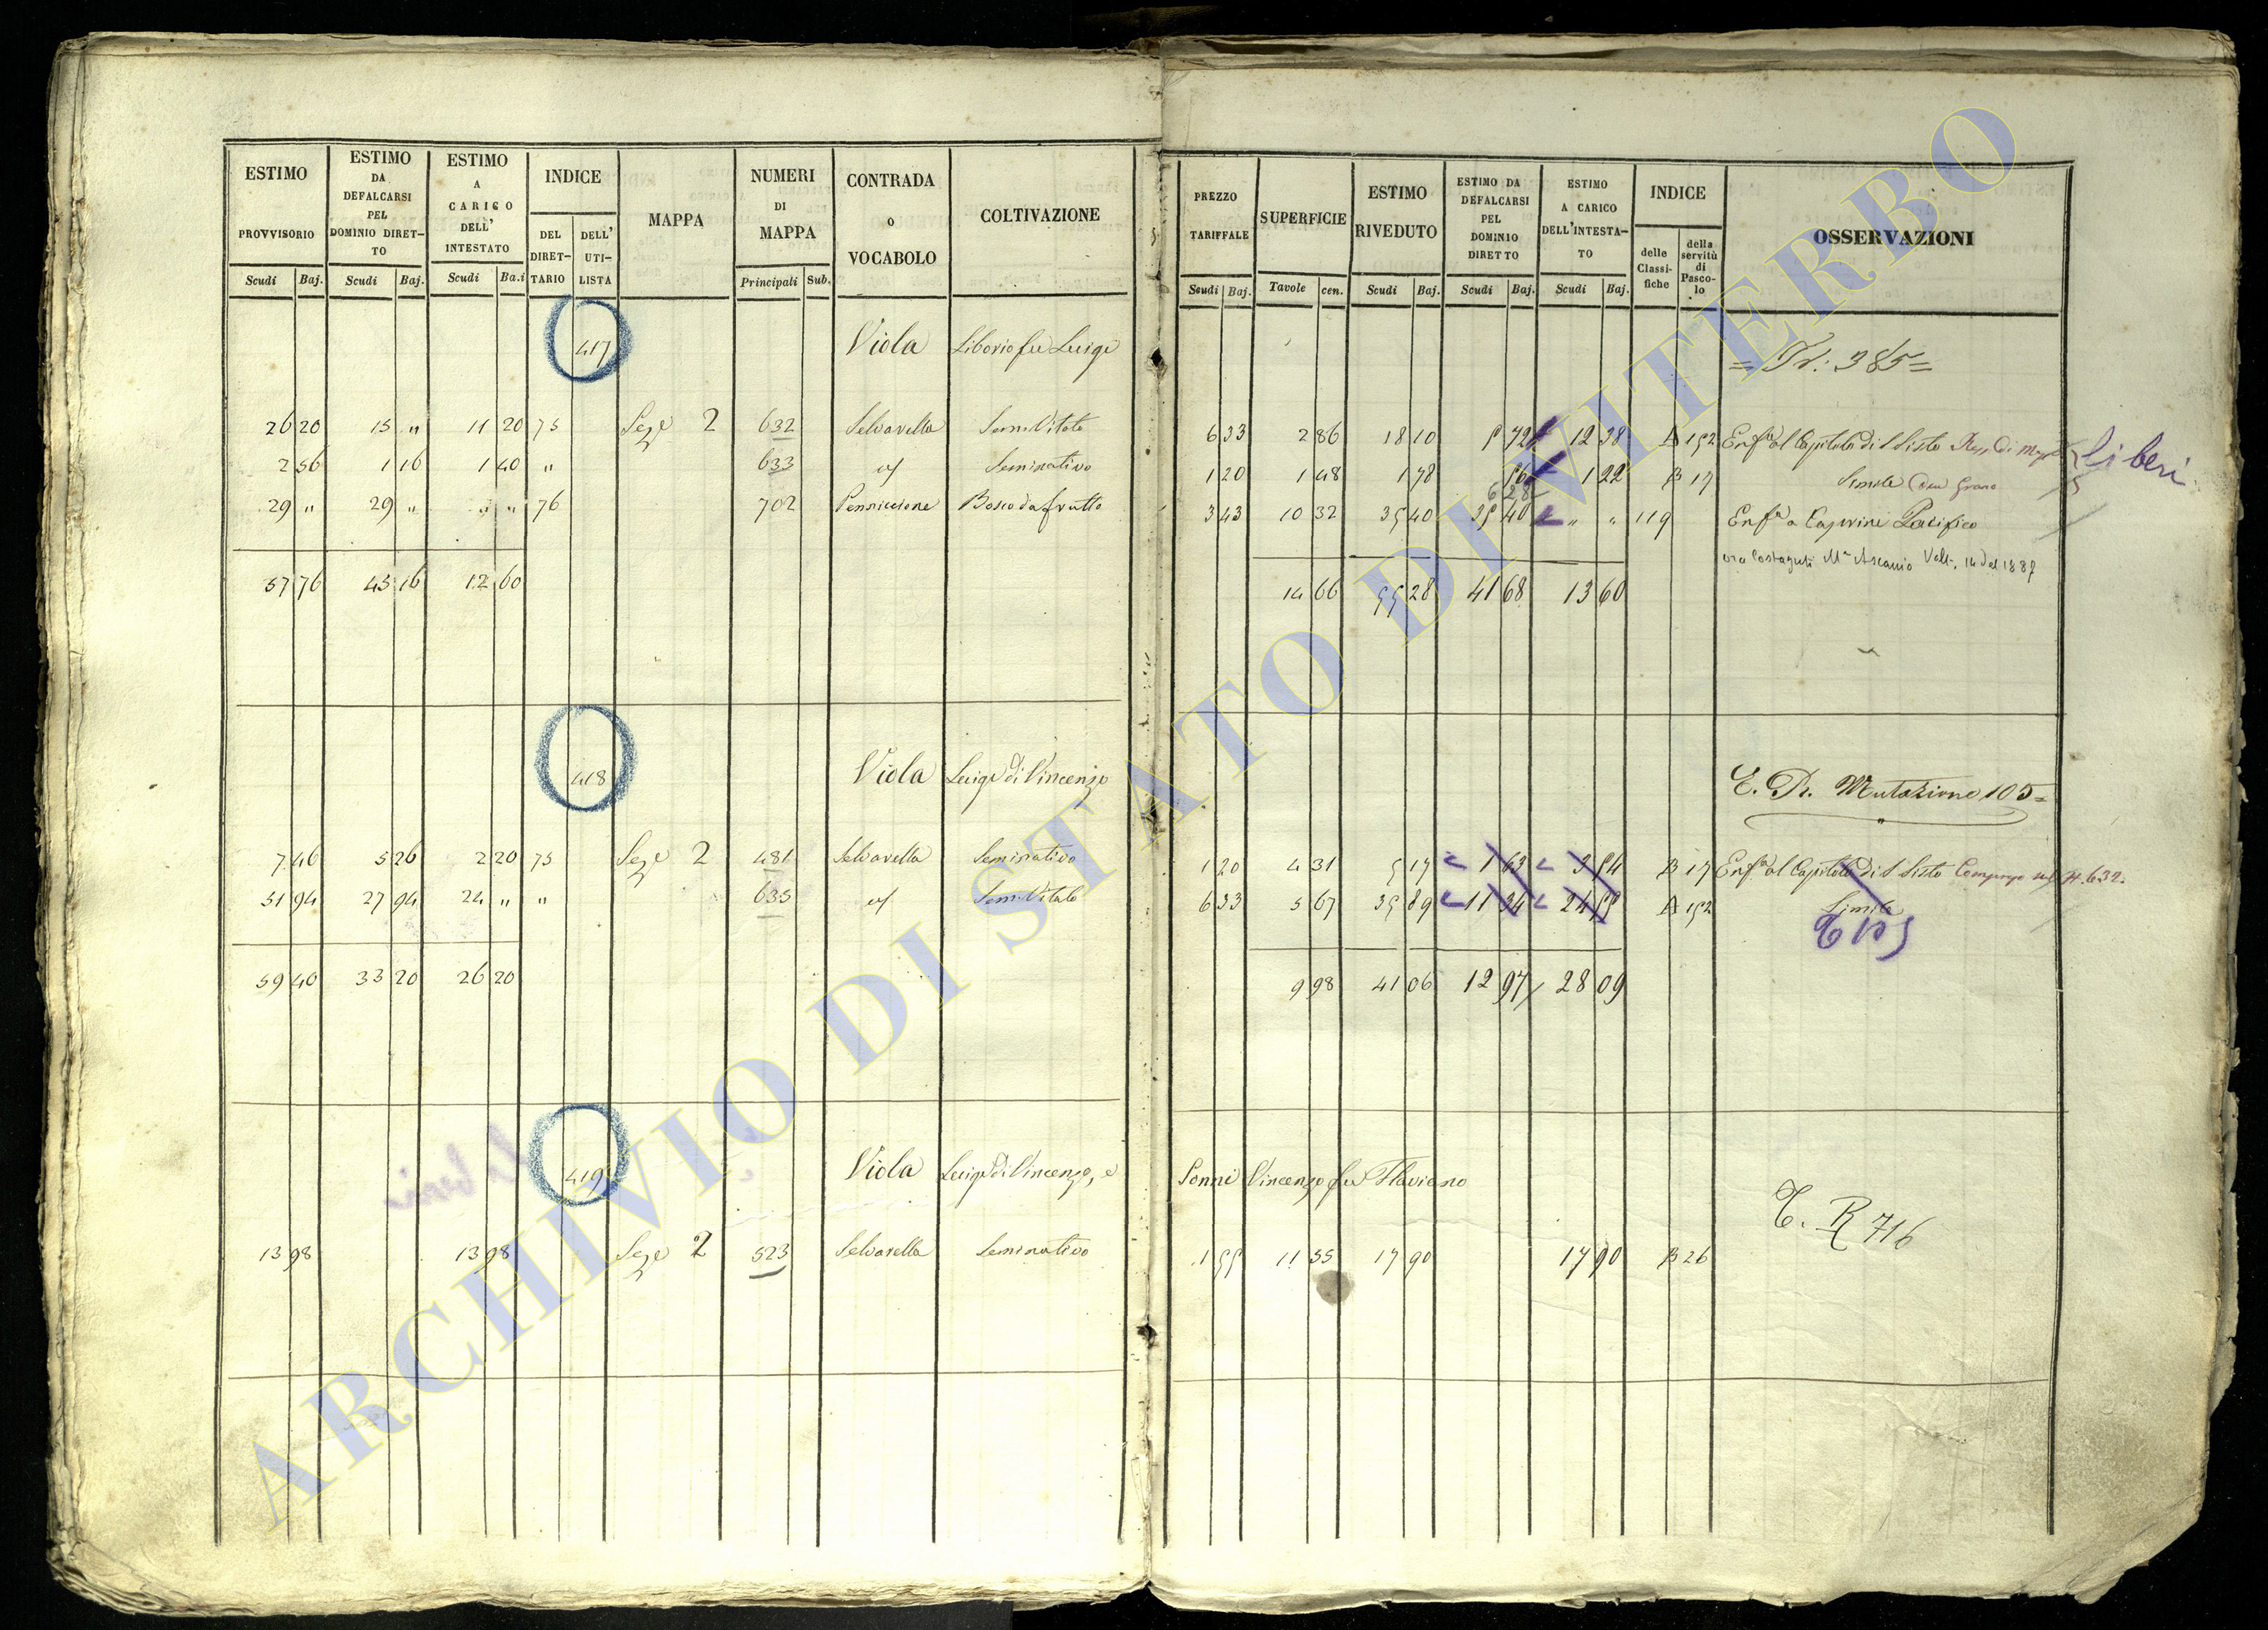 ESTIMO PROVVISORIO Scudi Baj.
ESTIMO DA DEFALCARSI PEL DOMINIO DIRET-TO Scudi Baj.
ESTIMO A CARICO DELL' INTESTATO Scudi Ba.i
INDICE DEL DIRET-TARIO DELL' UTI-LISTA
MAPPA
NUMERI DI MAPPA Principali Sub.
CONTRADA o VOCABOLO
COLTIVAZIONE
PREZZO TARIFFALE Scudi Baj.
SUPERFICIE Tavole cen.
ESTIMO RIVEDUTO Scudi Baj.
ESTIMO DA DEFALCARSI PEL DOMINIO DIRETTO Scudi Baj.
ESTIMO A CARICO DELL'INTESTA-TO Scudi Baj.
INDICE delle Classi-fiche della servitù di Pasco-lo
OSSERVAZIONI
417 Viola Liborio fu Luigi = Tr: 385 =
26 20 15 " 11 20 75 Seze 2 632 Selvarella Sem. Vitato 6 33 2 86 18 10 5 72 12 38 A 152 Enfa al Capitolo di S Sisto
liberi
2 56 1 16 1 40 " 633 " Seminativo 1 20 1 48 1 78 56 1 22 B 17 Simile
6 28
29 " 29 " " " 76 702 Pennicione Bosco da frutto 3 43 10 32 35 40 35 40 " " 119 Enfa a Caprini Pacifico
ora Costaguti Ma Ascanio Volt. 14 del 1887
57 76 45 16 12 60 14 66 55 28 41 68 13 60
418 Viola Luigi di Vincenzo E. R. Mutazione 105 =
7 46 5 26 2 20 75 Seze 2 481 Selvarella Seminativo 1 20 4 31 5 17 1 63 3 54 B 17 Enfa al Capitolo di S Sisto Compreso nel N. 632.
51 94 27 94 24 " " 635 " Sem. Vitato 6 33 5 67 35 89 11 34 24 55 A 152 Simile
T 105
59 40 33 20 26 20 9 98 41 06 12 97 28 09
419 Viola Luigi di Vincenzo, e Sonni Vincenzo fu Flaviano
T. R 716
13 98 13 98 Seze 2 523 Selvarella Seminativo 1 55 11 55 17 90 17 90 B 26
ARCHIVIO DI STATO DI VITERBO